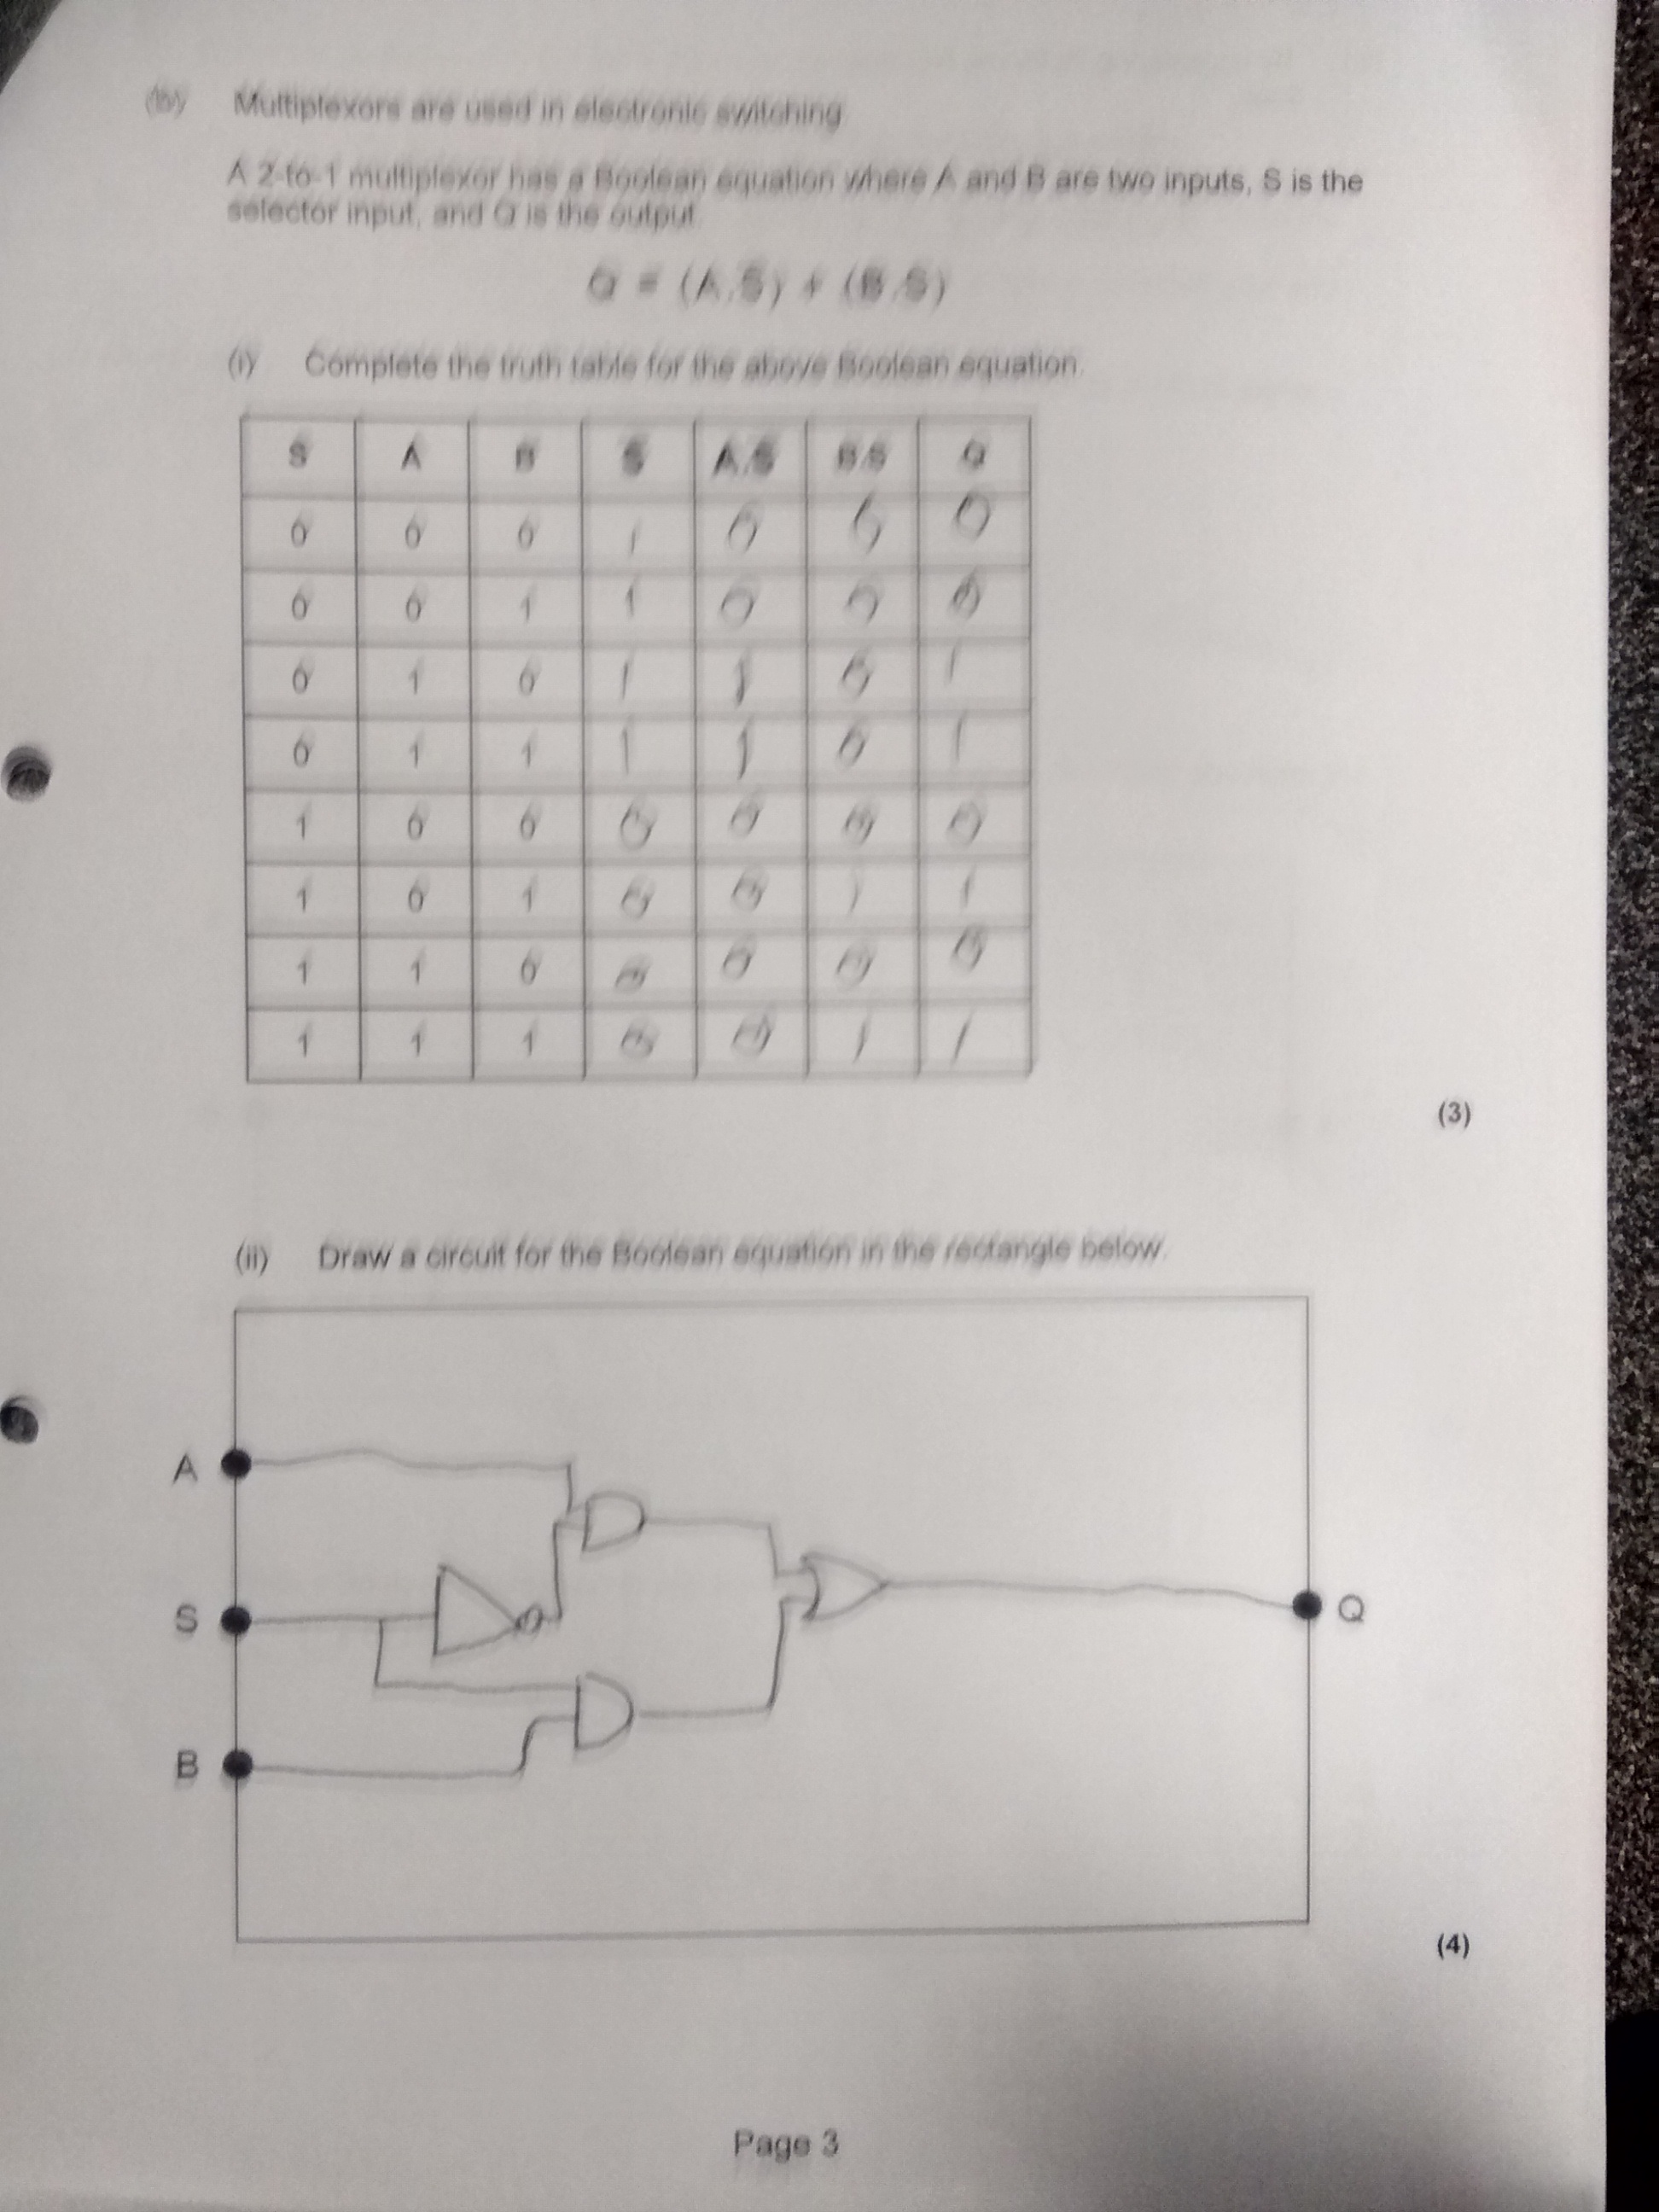 (b) Multiplexors are used in electronic switching.
A 2-to-1 multiplexor has a Boolean equation where A and B are two inputs, S is the
selector input, and Q is the output.
Q = (A.S̅) + (B.S)
(i) Complete the truth table for the above Boolean equation.
S A B S̅ A.S̅ B.S Q
0 0 0 1 0 0 0
0 0 1 1 0 0 0
0 1 0 1 1 0 1
0 1 1 1 1 0 1
1 0 0 0 0 0 0
1 0 1 0 0 1 1
1 1 0 0 0 0 0
1 1 1 0 0 1 1
(3)
(ii) Draw a circuit for the Boolean equation in the rectangle below.
A
S
Q
B
(4)
Page 3